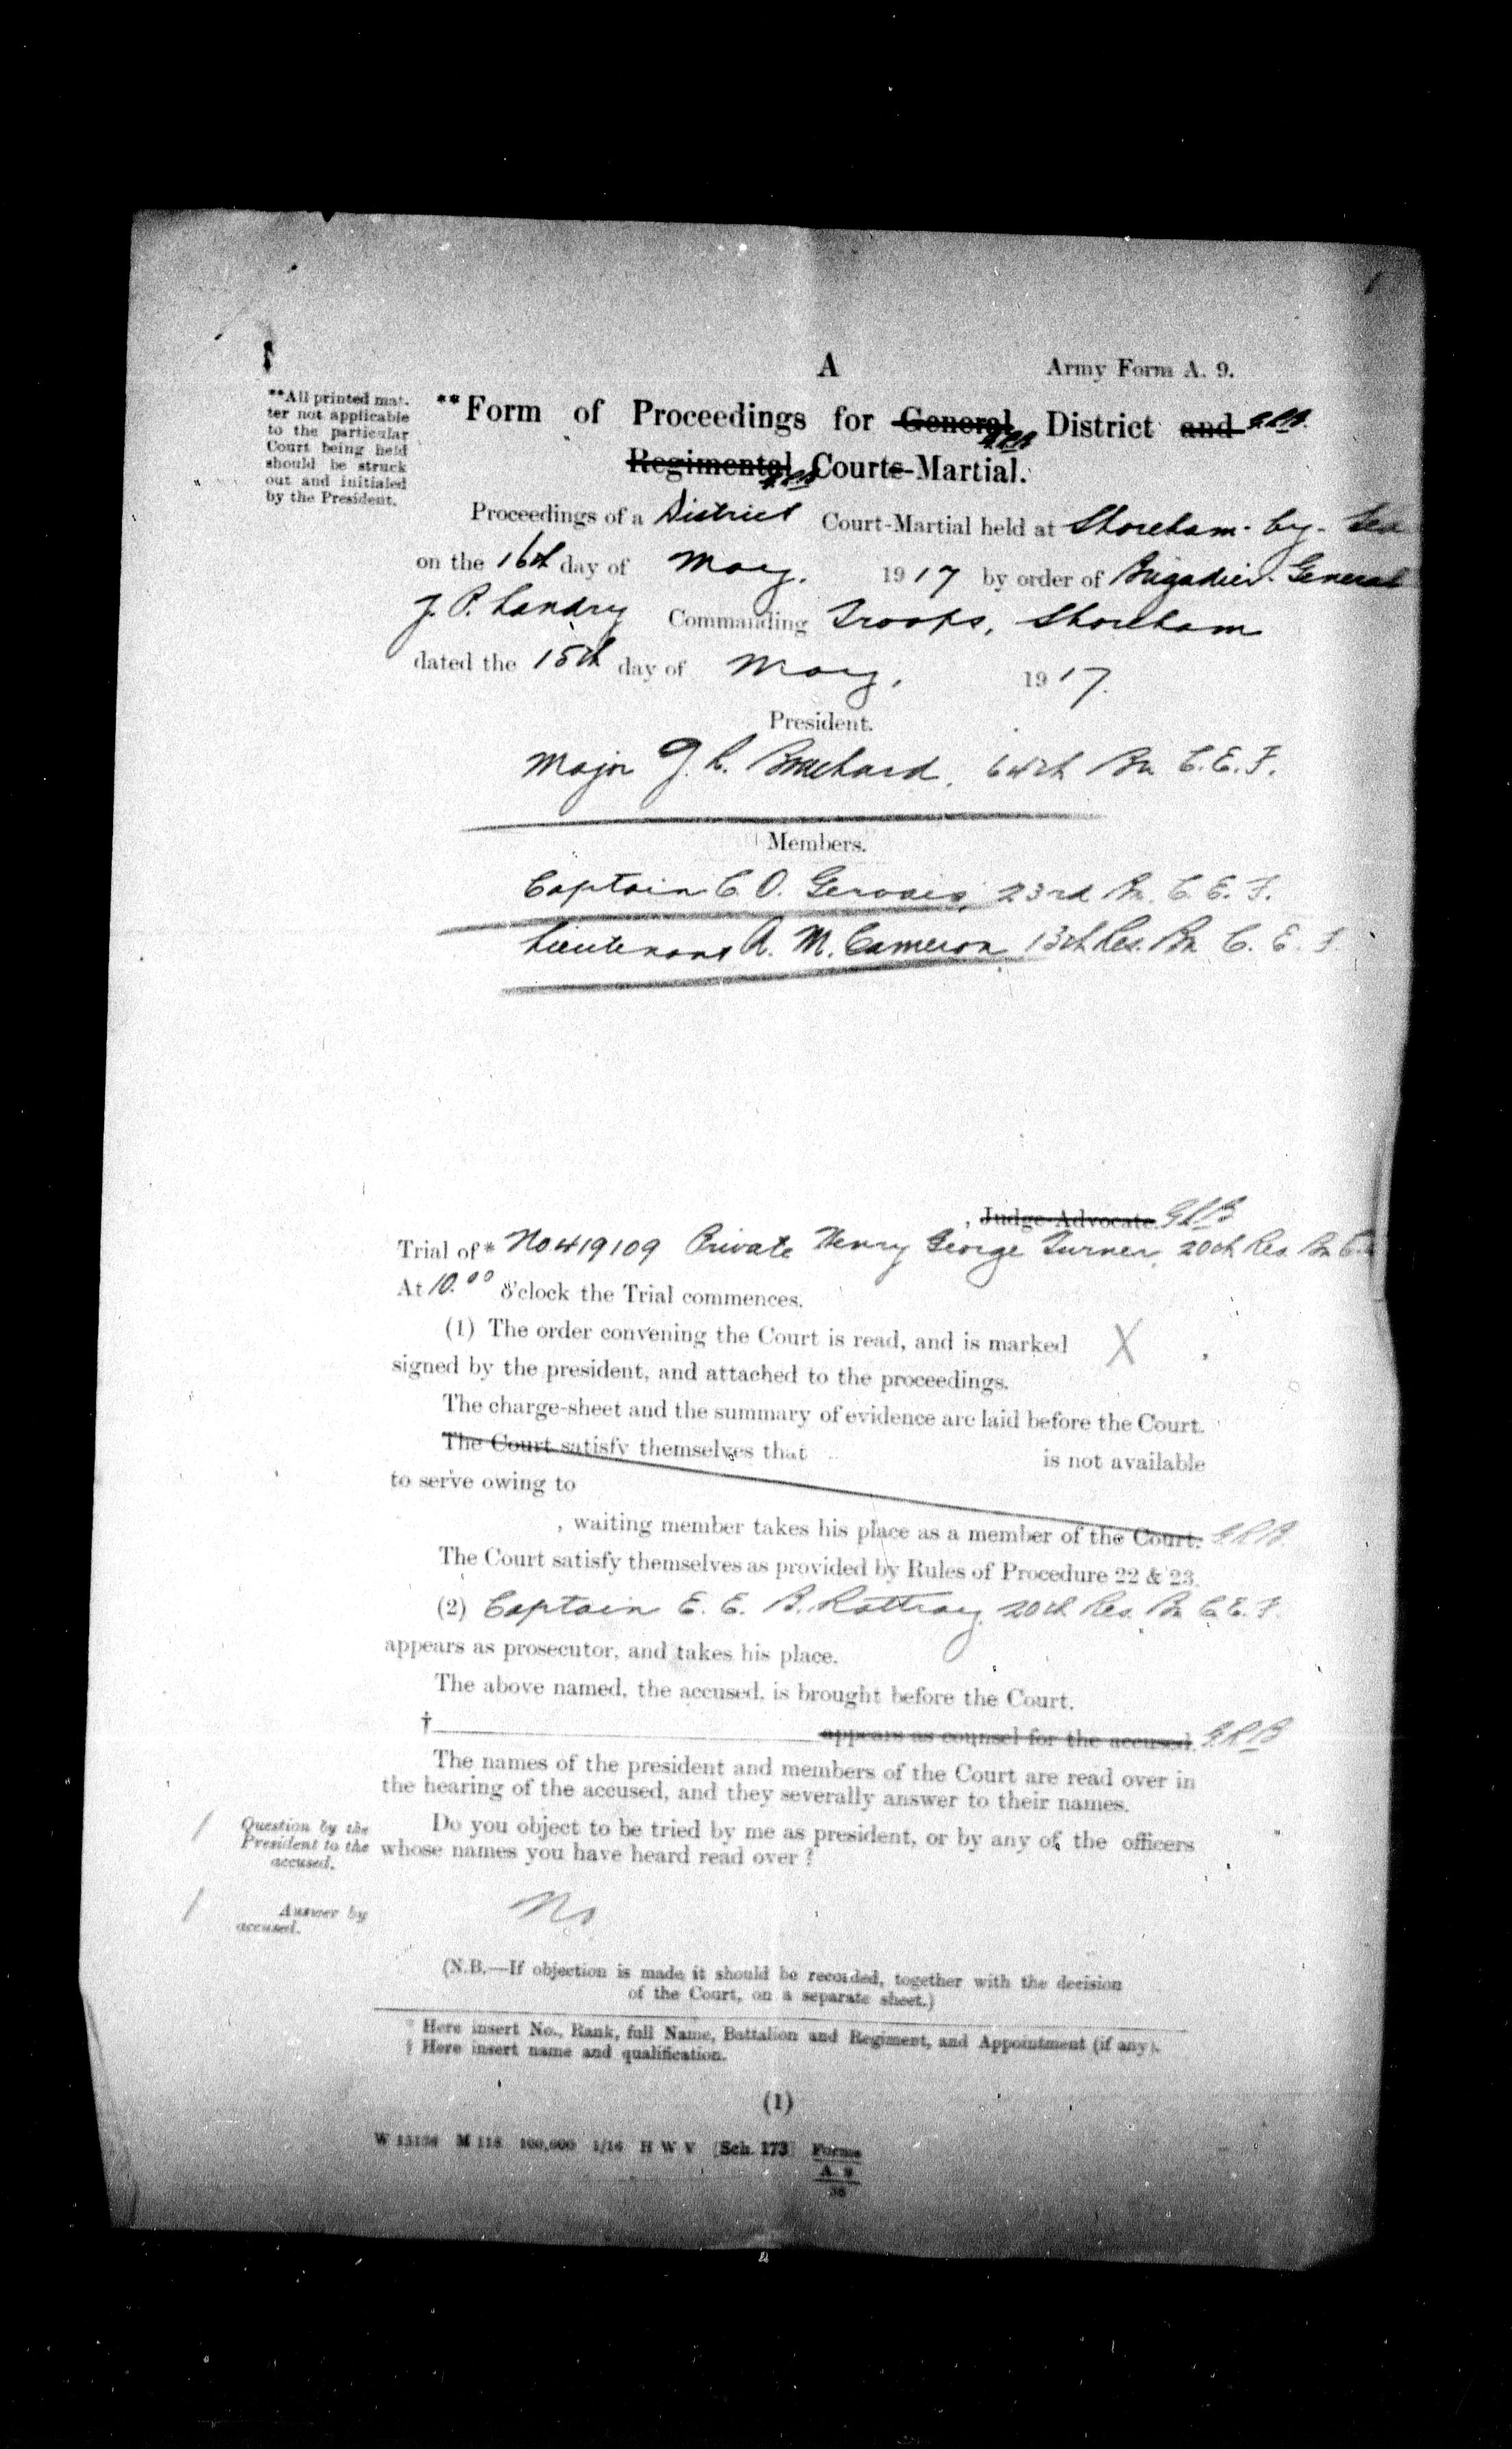 A
Army Form A. 9.
**All printed mat-
ter not applicable
to the particular
Court being held
should be struck
out and initialed
by the President.
**Form of Proceedings for General District and
Regimental Courts-Martial.
Proceedings of a District Court-Martial held at Shoreham-by-Sea
on the 16th day of May. 1917 by order of Brigadier-General
J. P. Landry Commanding Troops, Shoreham
dated the 15th day of May, 1917.
President.
Major G. R. 64th Bn C.E.F.
Members.
Captain C. O. Gervais, 23rd Bn. C.E.F.
Lieutenant A. M. Cameron 13th Res. Bn C.E.F.
, Judge-Advocate. G.R.B
Trial of* No 419109 Private Henry George Turner, 20th Res. Bn
At 10.00 o'clock the Trial commences.
(1) The order convening the Court is read, and is marked X .
signed by the president, and attached to the proceedings.
The charge-sheet and the summary of evidence are laid before the Court.
The Court satisfy themselves that is not available
to serve owing to
, waiting member takes his place as a member of the Court. G.R.B.
The Court satisfy themselves as provided by Rules of Procedure 22 & 23.
(2) Captain E. E. B. Rattray, 20th Res. Bn C.E.F.
appears as prosecutor, and takes his place.
The above named, the accused, is brought before the Court.
† appears as counsel for the accused. G.R.B
The names of the president and members of the Court are read over in
the hearing of the accused, and they severally answer to their names.
Question by the
President to the
accused.
Do you object to be tried by me as president, or by any of the officers
whose names you have heard read over?
Answer by
accused.
No
(N.B.—If objection is made it should be recorded, together with the decision
of the Court, on a separate sheet.)
* Here insert No., Rank, full Name, Battalion and Regiment, and Appointment (if any).
† Here insert name and qualification.
(1)
M 118 100,000 1/16 H W V [Sch. 173] Forms
A. 9